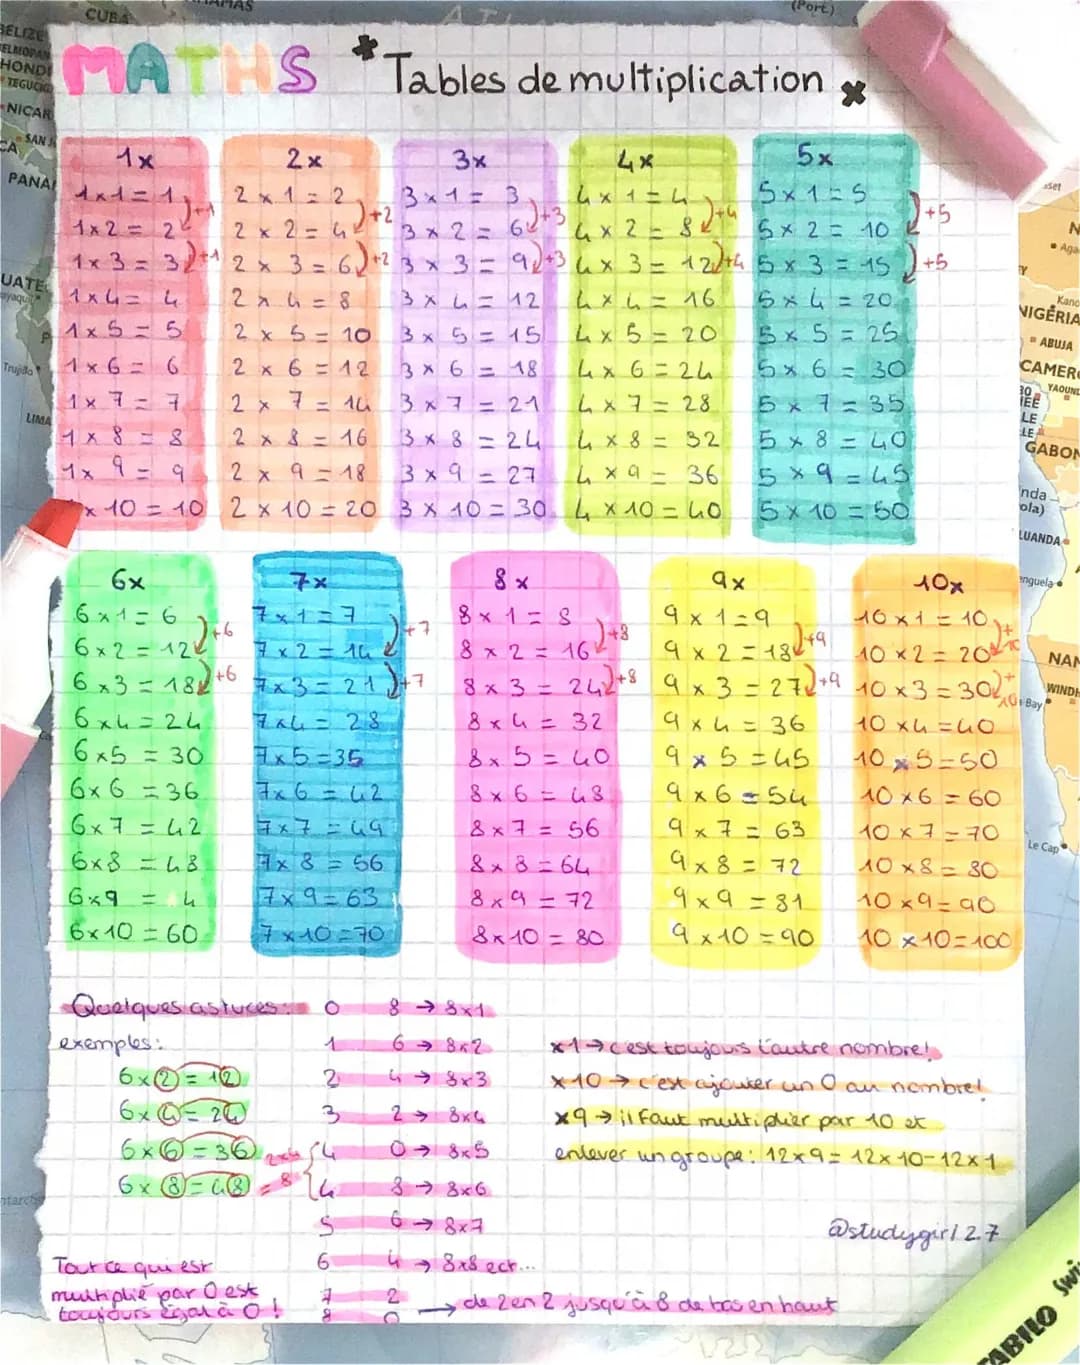 MATHS * Tables de multiplication *
1x
1x1 = 1 +1
1x2 = 2 +1
1x3 = 3
1x4 = 4
1x5 = 5
1x6 = 6
1x7 = 7
1x8 = 8
1x9 = 9
x10 = 10
2x
2x1 = 2 +2
2x2 = 4 +2
2x3 = 6
2x4 = 8
2x5 = 10
2x6 = 12
2x7 = 14
2x8 = 16
2x9 = 18
2x10 = 20
3x
3x1 = 3 +3
3x2 = 6 +3
3x3 = 9
3x4 = 12
3x5 = 15
3x6 = 18
3x7 = 21
3x8 = 24
3x9 = 27
3x10 = 30
4x
4x1 = 4 +4
4x2 = 8 +4
4x3 = 12
4x4 = 16
4x5 = 20
4x6 = 24
4x7 = 28
4x8 = 32
4x9 = 36
4x10 = 40
5x
5x1 = 5 +5
5x2 = 10 +5
5x3 = 15
5x4 = 20
5x5 = 25
5x6 = 30
5x7 = 35
5x8 = 40
5x9 = 45
5x10 = 50
6x
6x1 = 6 +6
6x2 = 12 +6
6x3 = 18
6x4 = 24
6x5 = 30
6x6 = 36
6x7 = 42
6x8 = 48
6x9 = 4
6x10 = 60
7x
7x1 = 7 +7
7x2 = 14 +7
7x3 = 21
7x4 = 28
7x5 = 35
7x6 = 42
7x7 = 49
7x8 = 56
7x9 = 63
7x10 = 70
8x
8x1 = 8 +8
8x2 = 16 +8
8x3 = 24
8x4 = 32
8x5 = 40
8x6 = 48
8x7 = 56
8x8 = 64
8x9 = 72
8x10 = 80
9x
9x1 = 9 +9
9x2 = 18 +9
9x3 = 27
9x4 = 36
9x5 = 45
9x6 = 54
9x7 = 63
9x8 = 72
9x9 = 81
9x10 = 90
10x
10x1 = 10 +10
10x2 = 20 +10
10x3 = 30
10x4 = 40
10x5 = 50
10x6 = 60
10x7 = 70
10x8 = 80
10x9 = 90
10x10 = 100
Quelques astuces:
exemples:
6x2 = 12
6x4 = 24
6x6 = 36
6x8 = 48
2x4 = 8
Tout ce qui est
multiplié par 0 est
toujours égal à 0 !
0 8 → 8x1
1 6 → 8x2
2 4 → 8x3
3 2 → 8x4
4 0 → 8x5
4 8 → 8x6
5 6 → 8x7
6 4 → 8x8 ect...
7 2
8 0
→ de 2 en 2 jusqu'à 8 de bas en haut
x1 → c'est toujours l'autre nombre!
x10 → c'est ajouter un 0 au nombre!
x9 → il faut multiplier par 10 et
enlever un groupe: 12x9 = 12x10-12x1
@studygirl2.7
CUBA
BELIZE
HOND
TEGUCIG
NICAR
SAN J
PANA
Trujillo
LIMA
(Port.)
Kano
NIGÉRIA
ABUJA
CAMER
YAOUN
GABON
LUANDA
NAM
WINDH
Le Cap
STABILO swi